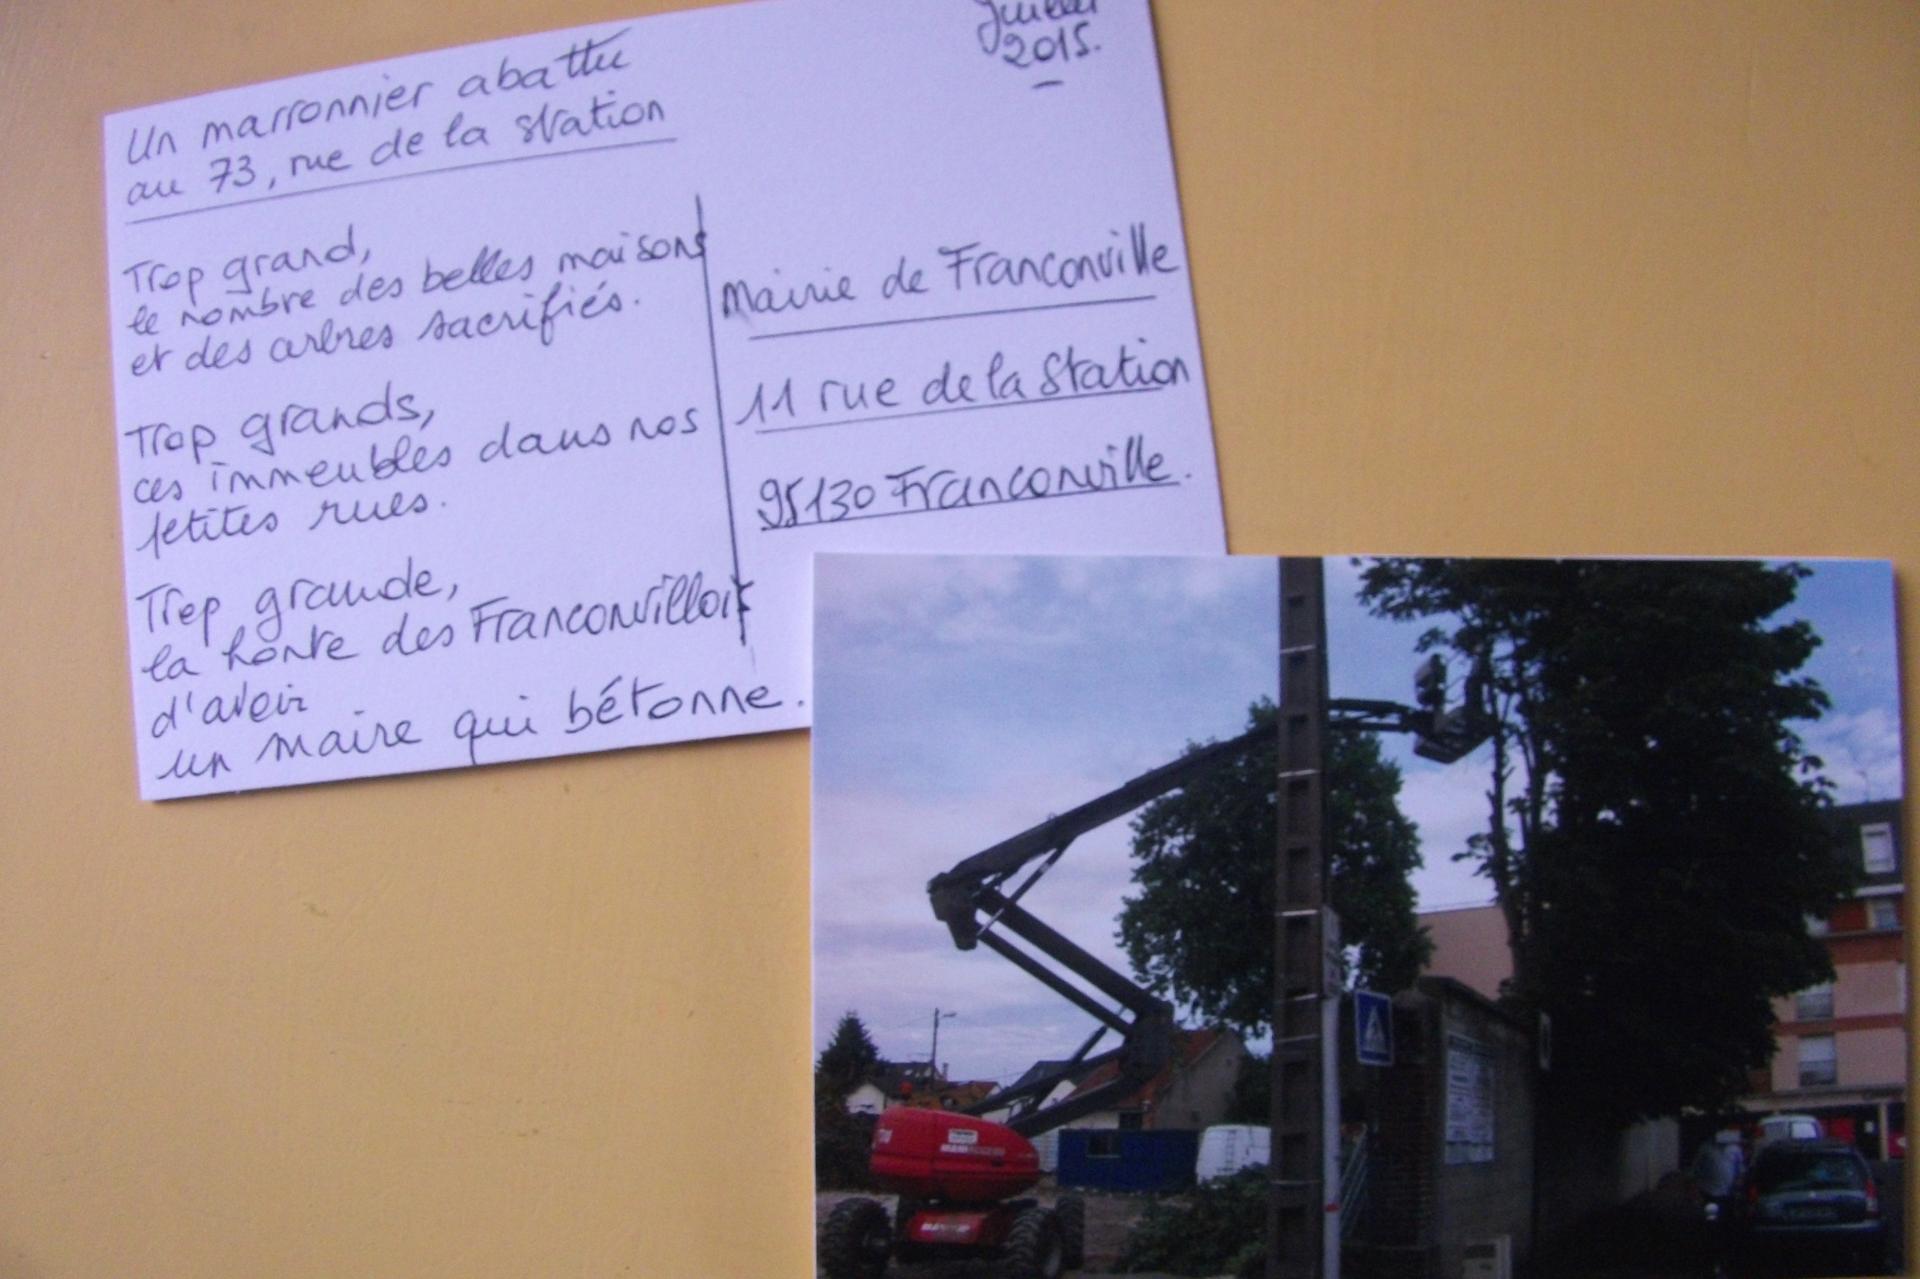 Juillet
2015.
Un marronnier abattu
au 73, rue de la station
Trop grand,
le nombre des belles maisons
et des arbres sacrifiés.
Trop grands,
ces immeubles dans nos
petites rues.
Trop grande,
la honte des Franconvillois
d'avoir
un maire qui bétonne.
Mairie de Franconville
11 rue de la Station
95130 Franconville.